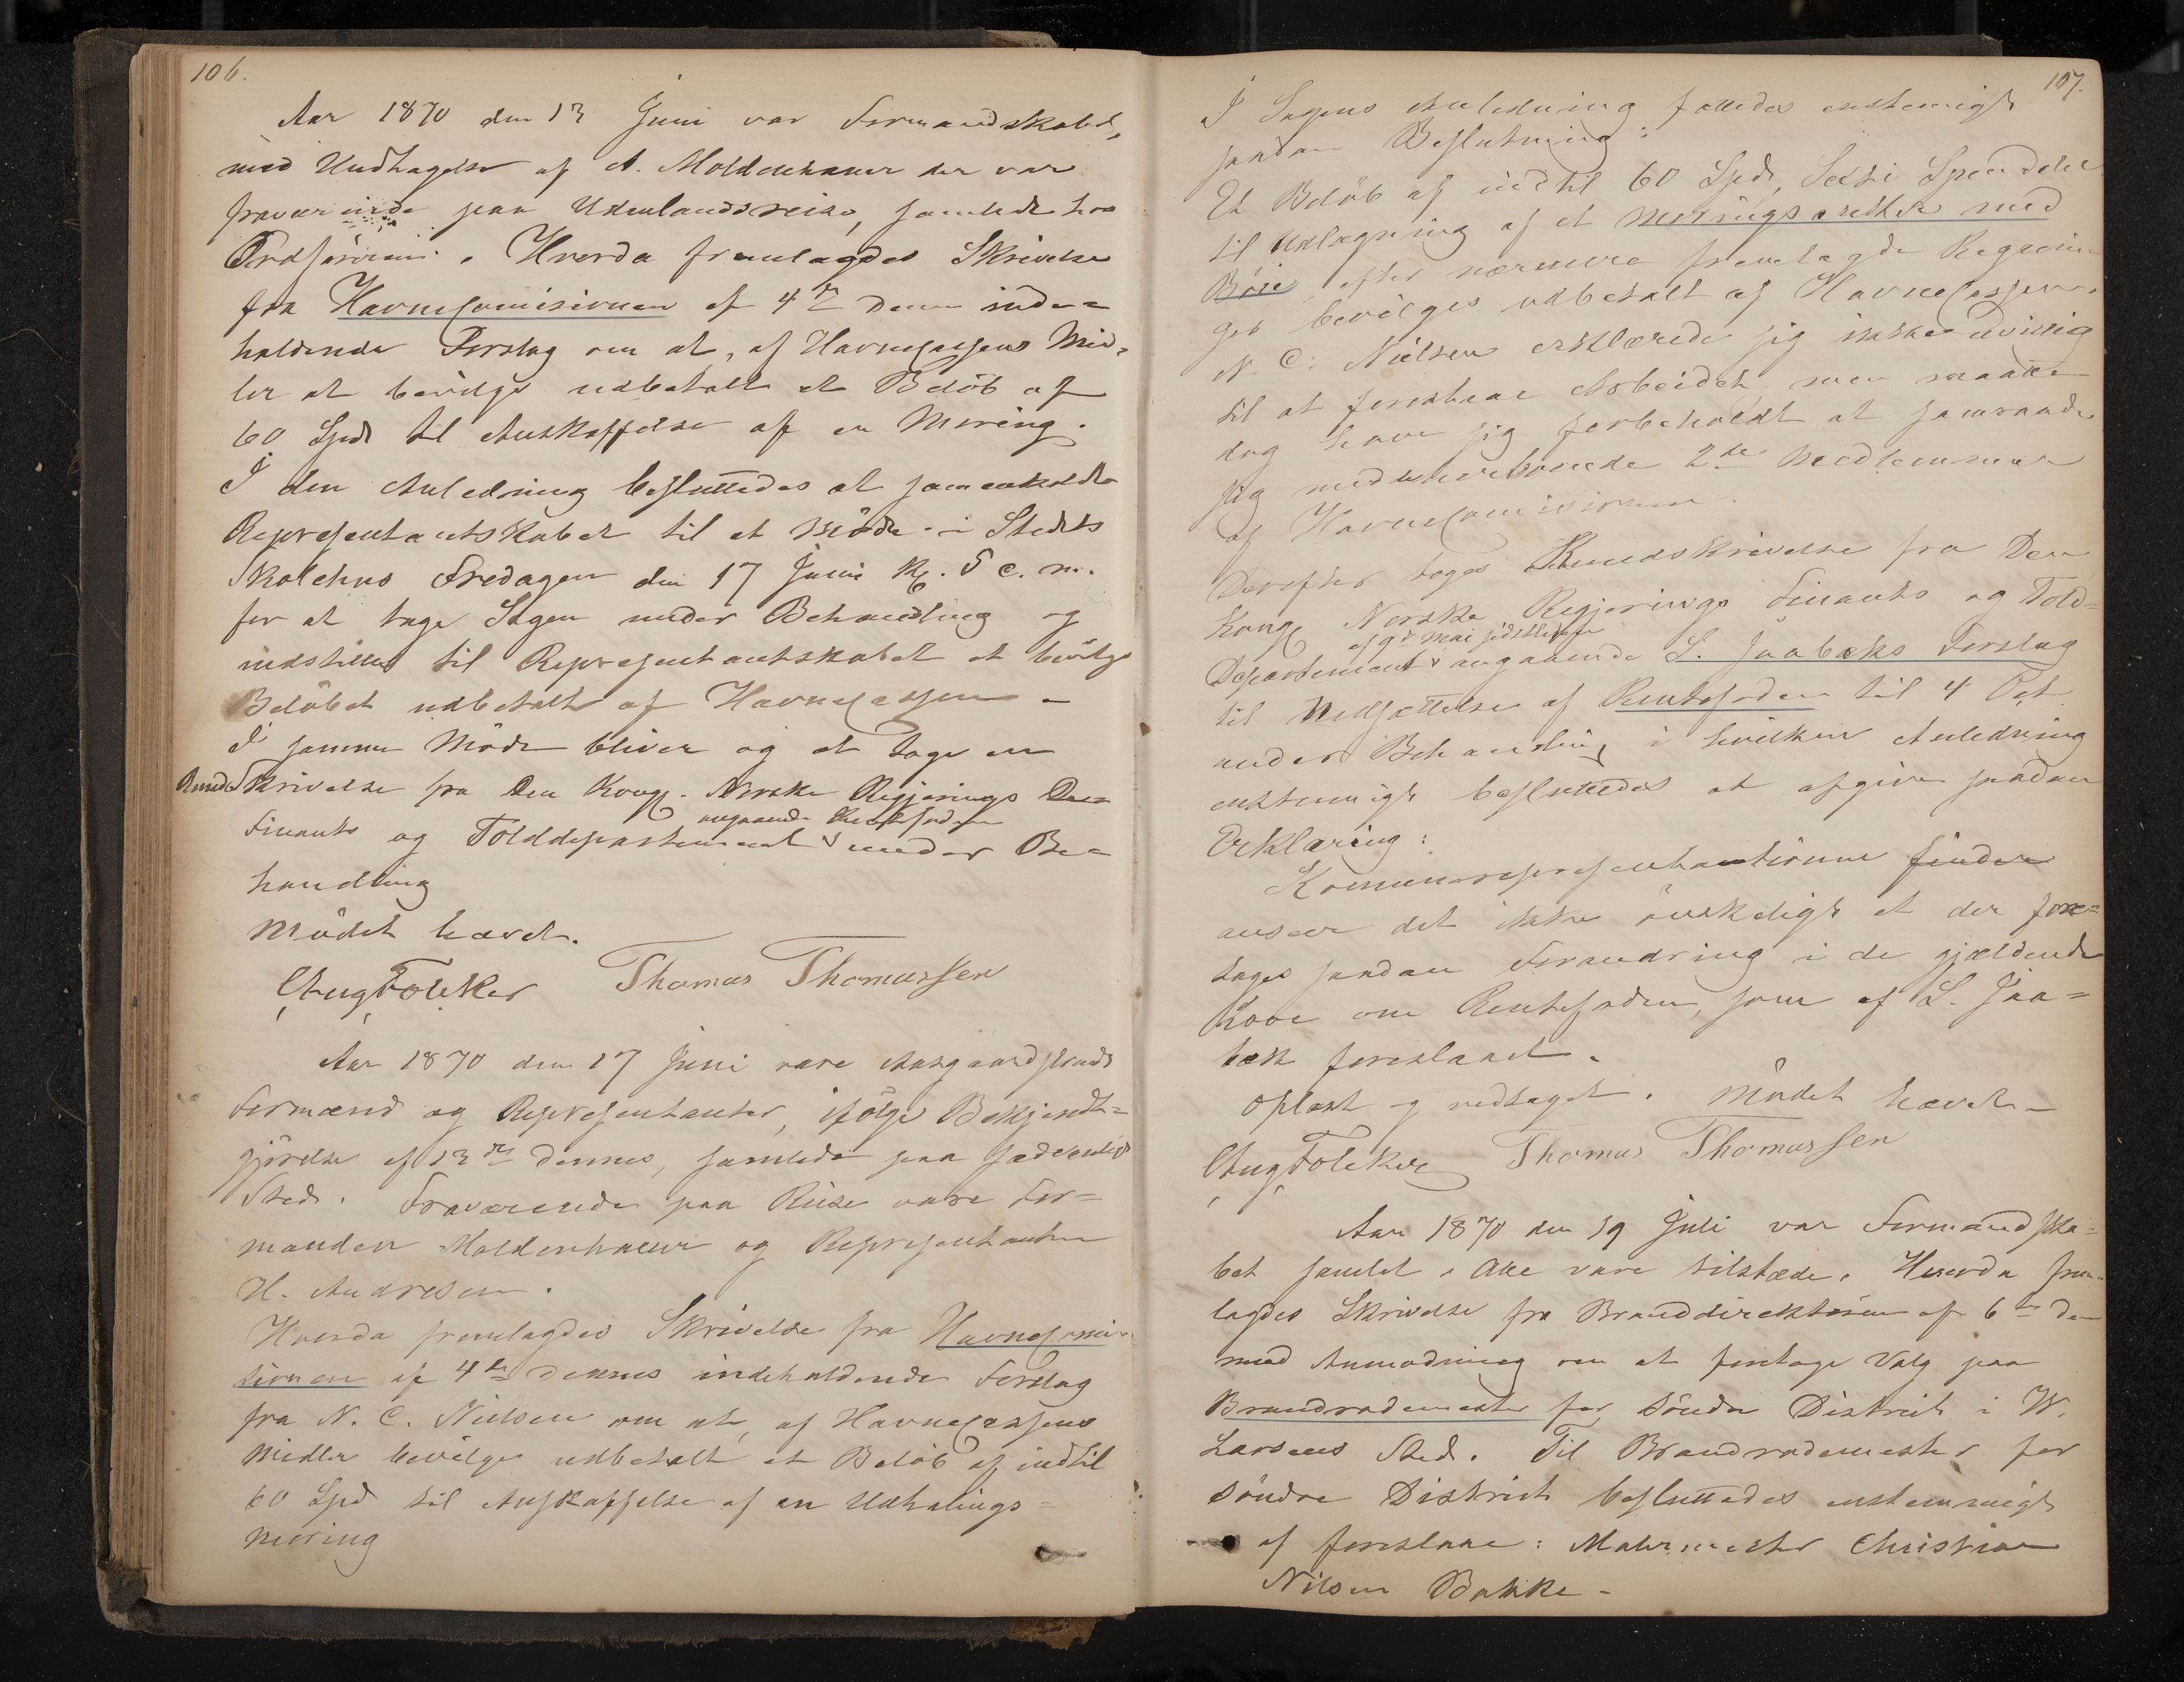 106.
Aar 1870 den 13 Juni var Formandskabet,
med Undtagelse af A. Moldenhauer der var
fraværende paa Udenlandsreise, samlede hos
Ordføreren. Hvorda fremlagdes Skrivelse
fra Havnecomisionen af 4de dennes inde=
holdende Forslag om at, af Havnecassens Mid=
ler at bevilge udbetalt et Beløb af
60 Spd til Anskaffelse af en Moring.
I den Anledning besluttedes at sammenkalde
Representantskabet til et Møde i Stedets
Skolehus Fredagen den 17 Juni Kl. 5 e. m.
for at tage Sagen under Behandling og
indstilles til Representantskabet at bevilge
Beløbet udbetalt af Havnecassen –
I samme Møde bliver og at tage en
Rund Skrivelse fra Den Kongl. Norske Regjerings De=
angaaende Rentefoden
Finants og Tolddepartement under Be=
handling
Mødet hævet.
Aug Følcker Thomas Thomassen
Aar 1870 den 17 Juni vare Aasgaardstrands
Formænd og Representanter, ifølge Bekjendt=
gjørelse af 13de dennes, samlede paa sædvanligt
Sted. Fraværende paa Reise vare For=
manden Moldenhauer og Representanten
H. Andresen.
Hvorda fremlagdes Skrivelse fra Havnecomi=
sionen af 4de dennes indeholdende Forslag
fra N. C. Nielsen om at, af Havnecassens
Midler bevilge udbetalt et Beløb af indtil
60 Spd til Anskaffelse af en Udhalings=
moring
107.
I Sagens Anledning fattedes enstemmigt
saadan Beslutning:
Et Beløb af indtil 60 Spd, Sexti Speciedaler
til Udlægning af et Moringsanker med
Bøie, efter nærmere fremlagde Regnin=
ger bevilges udbetalt af Havnecassen.
N. C. Nielsen erklærede sig ikke uvillig
til at forestaae Arbeidet men maatte
dog have sig forbeholdt at samraade
sig med de herværende 2de Medlemmer
af Havnecomisionen.
Derefter toges Rundskrivelse fra Den
Kongl Norske Regjerings Finants og Told=
af 9de Mai sidstleden
Departement angaaende S. Jaabæks Forslag
til Nedsættelse af Rentefoden til 4 Pct
under Behandling i hvilken Anledning
enstemmigt besluttedes at afgive saadan
Erklæring:
Kommunerepresentantionen finder
anseer det ikke ønskeligt at der fore=
tages saadan Forandring i de gjældende
Love om Rentefoden, som af S. Jaa=
bæk foreslaaet.
Oplæst og vedtaget. Mødet hævet –
Aug Følcker Thomas Thomassen
Aar 1870 den 19 Juli var Formandska=
bet samlet. Alle vare tilstæde. Hvorda frem=
lagdes Skrivelse fra Branddirektøren af 6te ds
med Anmodning om at foretage Valg paa
Brandrodemester for Søndre District i W.
Larsens Sted. Til Brandrodemester for
Søndre District besluttedes enstemmigt
at foreslaae: Malermester Christian
Nilsen Bakke –